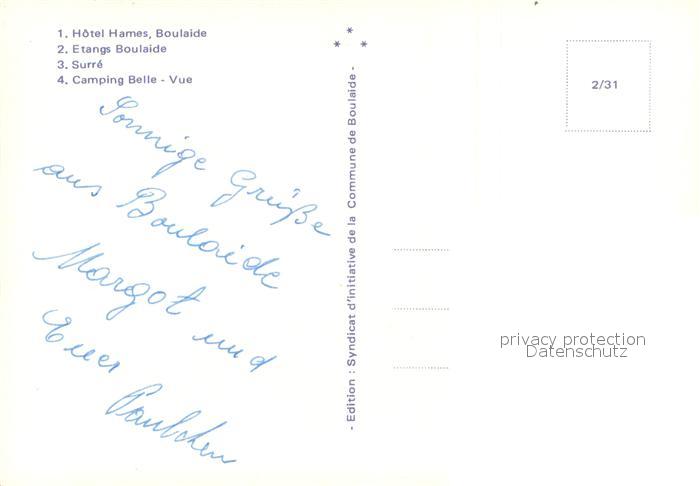 1. Hôtel Hames, Boulaide
2. Etangs Boulaide
3. Surré
4. Camping Belle - Vue
Sonnige Grüße
aus Boulaide
Margot und
Euer
Paulchen
- Edition : Syndicat d'initiative de la Commune de Boulaide -
2/31
privacy protection
Datenschutz